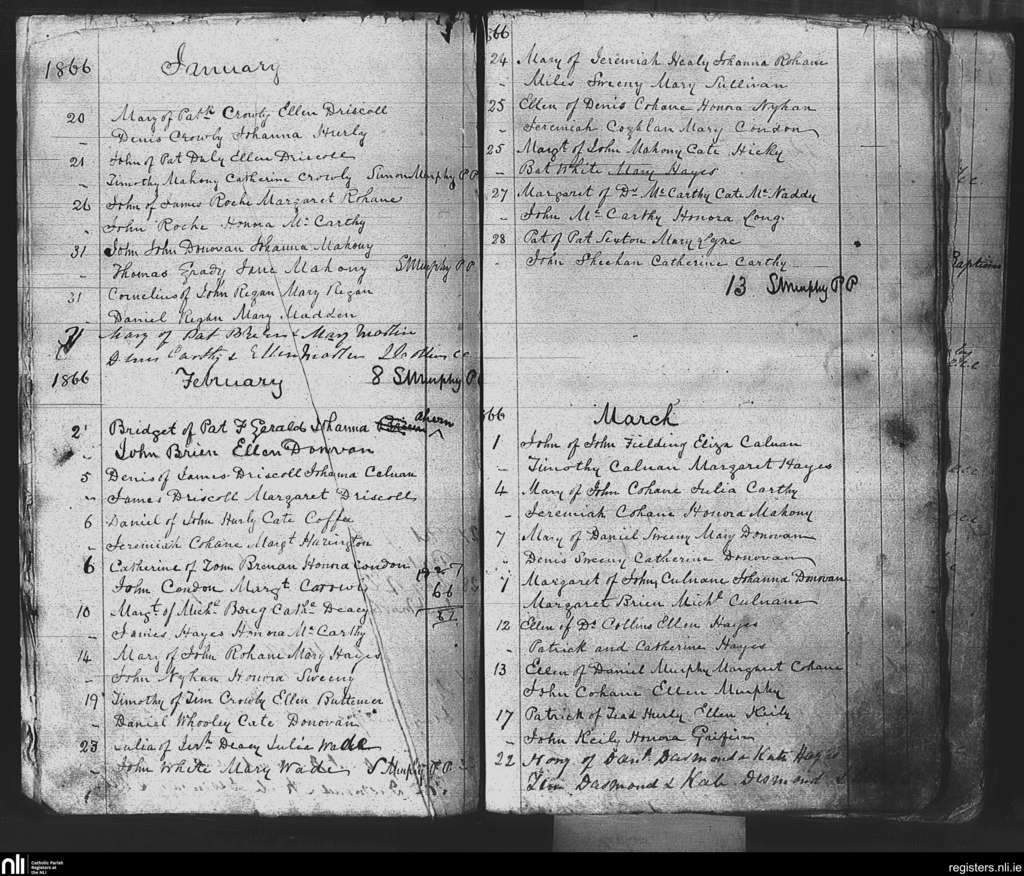 1866 January
20 Mary of Patk Crowly Ellen Driscoll
" Denis Crowly Johanna Hurly
21 John of Pat Duly Ellen Driscoll
" Timothy Mahony Catherine Crowly Simon Murphy PP
26 John of James Roche Margaret Rohane
" John Roche Honora McCarthy
31 John John Donovan Johanna Mahony
" Thomas Grady Jane Mahony SMurphy PP
31 Cornelius of John Regan Mary Regan
" Daniel Regan Mary Madden
Mary of Pat & Mary
Denis Carthy & Ellen
1866 February 8 SMurphy PP
2 Bridget of Pat F Gerald Johanna Ahern
" John Brien Ellen Donovan
5 Denis of James Driscoll Johanna Calnan
" James Driscoll Margaret Driscoll
6 Daniel of John Hurly Cate Coffee
" Jeremiah Cohane Margt Harington
6 Catherine of Tom Brenan Honora Condon
John Condon Margt
66
10 Margt of Michl Cathe Deacy
" James Hayes Honora McCarthy
14 Mary of John Rohane Mary Hayes
" John Nyhan Honora Sweeny
19 Timothy of Tim Crowly Ellen Buttemer
" Daniel Whooley Cate Donovan
23 Julia of Jerh Deacy Julia Wade
" John White Mary Wade S Murphy PP
66
24 Mary of Jeremiah Healy Johanna Rohane
" Miles Sweeny Mary Sullivan
25 Ellen of Denis Cohane Honora Nyhan
" Jeremiah Coghlan Mary Condon
25 Margt of John Mahony Cate Hicky
" Bat White Mary Hayes
27 Margaret of Ds McCarthy Cate McNaddy
" John McCarthy Honora Long
28 Pat of Pat Sexton Mary Lyne
" John Sheehan Catherine Carthy
13 SMurphy PP
66 March
1 John of John Fielding Eliza Calnan
" Timothy Calnan Margaret Hayes
4 Mary of John Cohane Julia Carthy
" Jeremiah Cohane Honora Mahony
7 Mary of Daniel Sweeny Mary Donovan
" Denis Sweeny Catherine Donovan
7 Margaret of John Culnane Johanna Donovan
Margaret Brien Michl Culnane
12 Ellen of Ds Collins Ellen Hayes
" Patrick and Catherine Hayes
13 Ellen of Daniel Murphy Margaret Cohane
John Cohane Ellen Murphy
17 Patrick of Tead Hurly Ellen Keily
" John Keily Honora Grifin
22 of Danl Dasmond & Kate Hayes
Tim Dasmond & Kate Desmond
nli Catholic Parish Registers at the NLI
registers.nli.ie